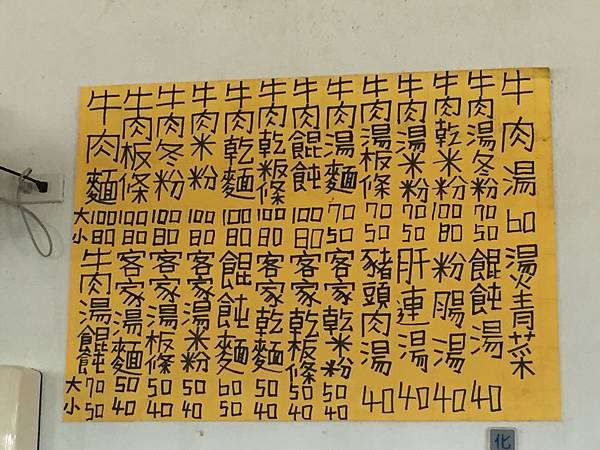 大小
牛肉麵 100 80
牛肉板條 100 80
牛肉冬粉 100 80
牛肉米粉 100 80
牛肉乾麵 100 80
牛肉乾粄條 100 80
牛肉餛飩 100 80
牛肉湯麵 70 50
牛肉湯板條 70 50
牛肉湯米粉 70 50
牛肉乾米粉 100 80
牛肉湯冬粉 70 50
牛肉湯 60
大小
牛肉湯餛飩 70 50
客家湯麵 50 40
客家湯板條 50 40
客家湯米粉 50 40
餛飩麵 60 50
客家乾麵 50 40
客家乾板條 50 40
客家乾米粉 50 40
豬頭肉湯 40
肝連湯 40
粉腸湯 40
餛飩湯 40
燙青菜
化